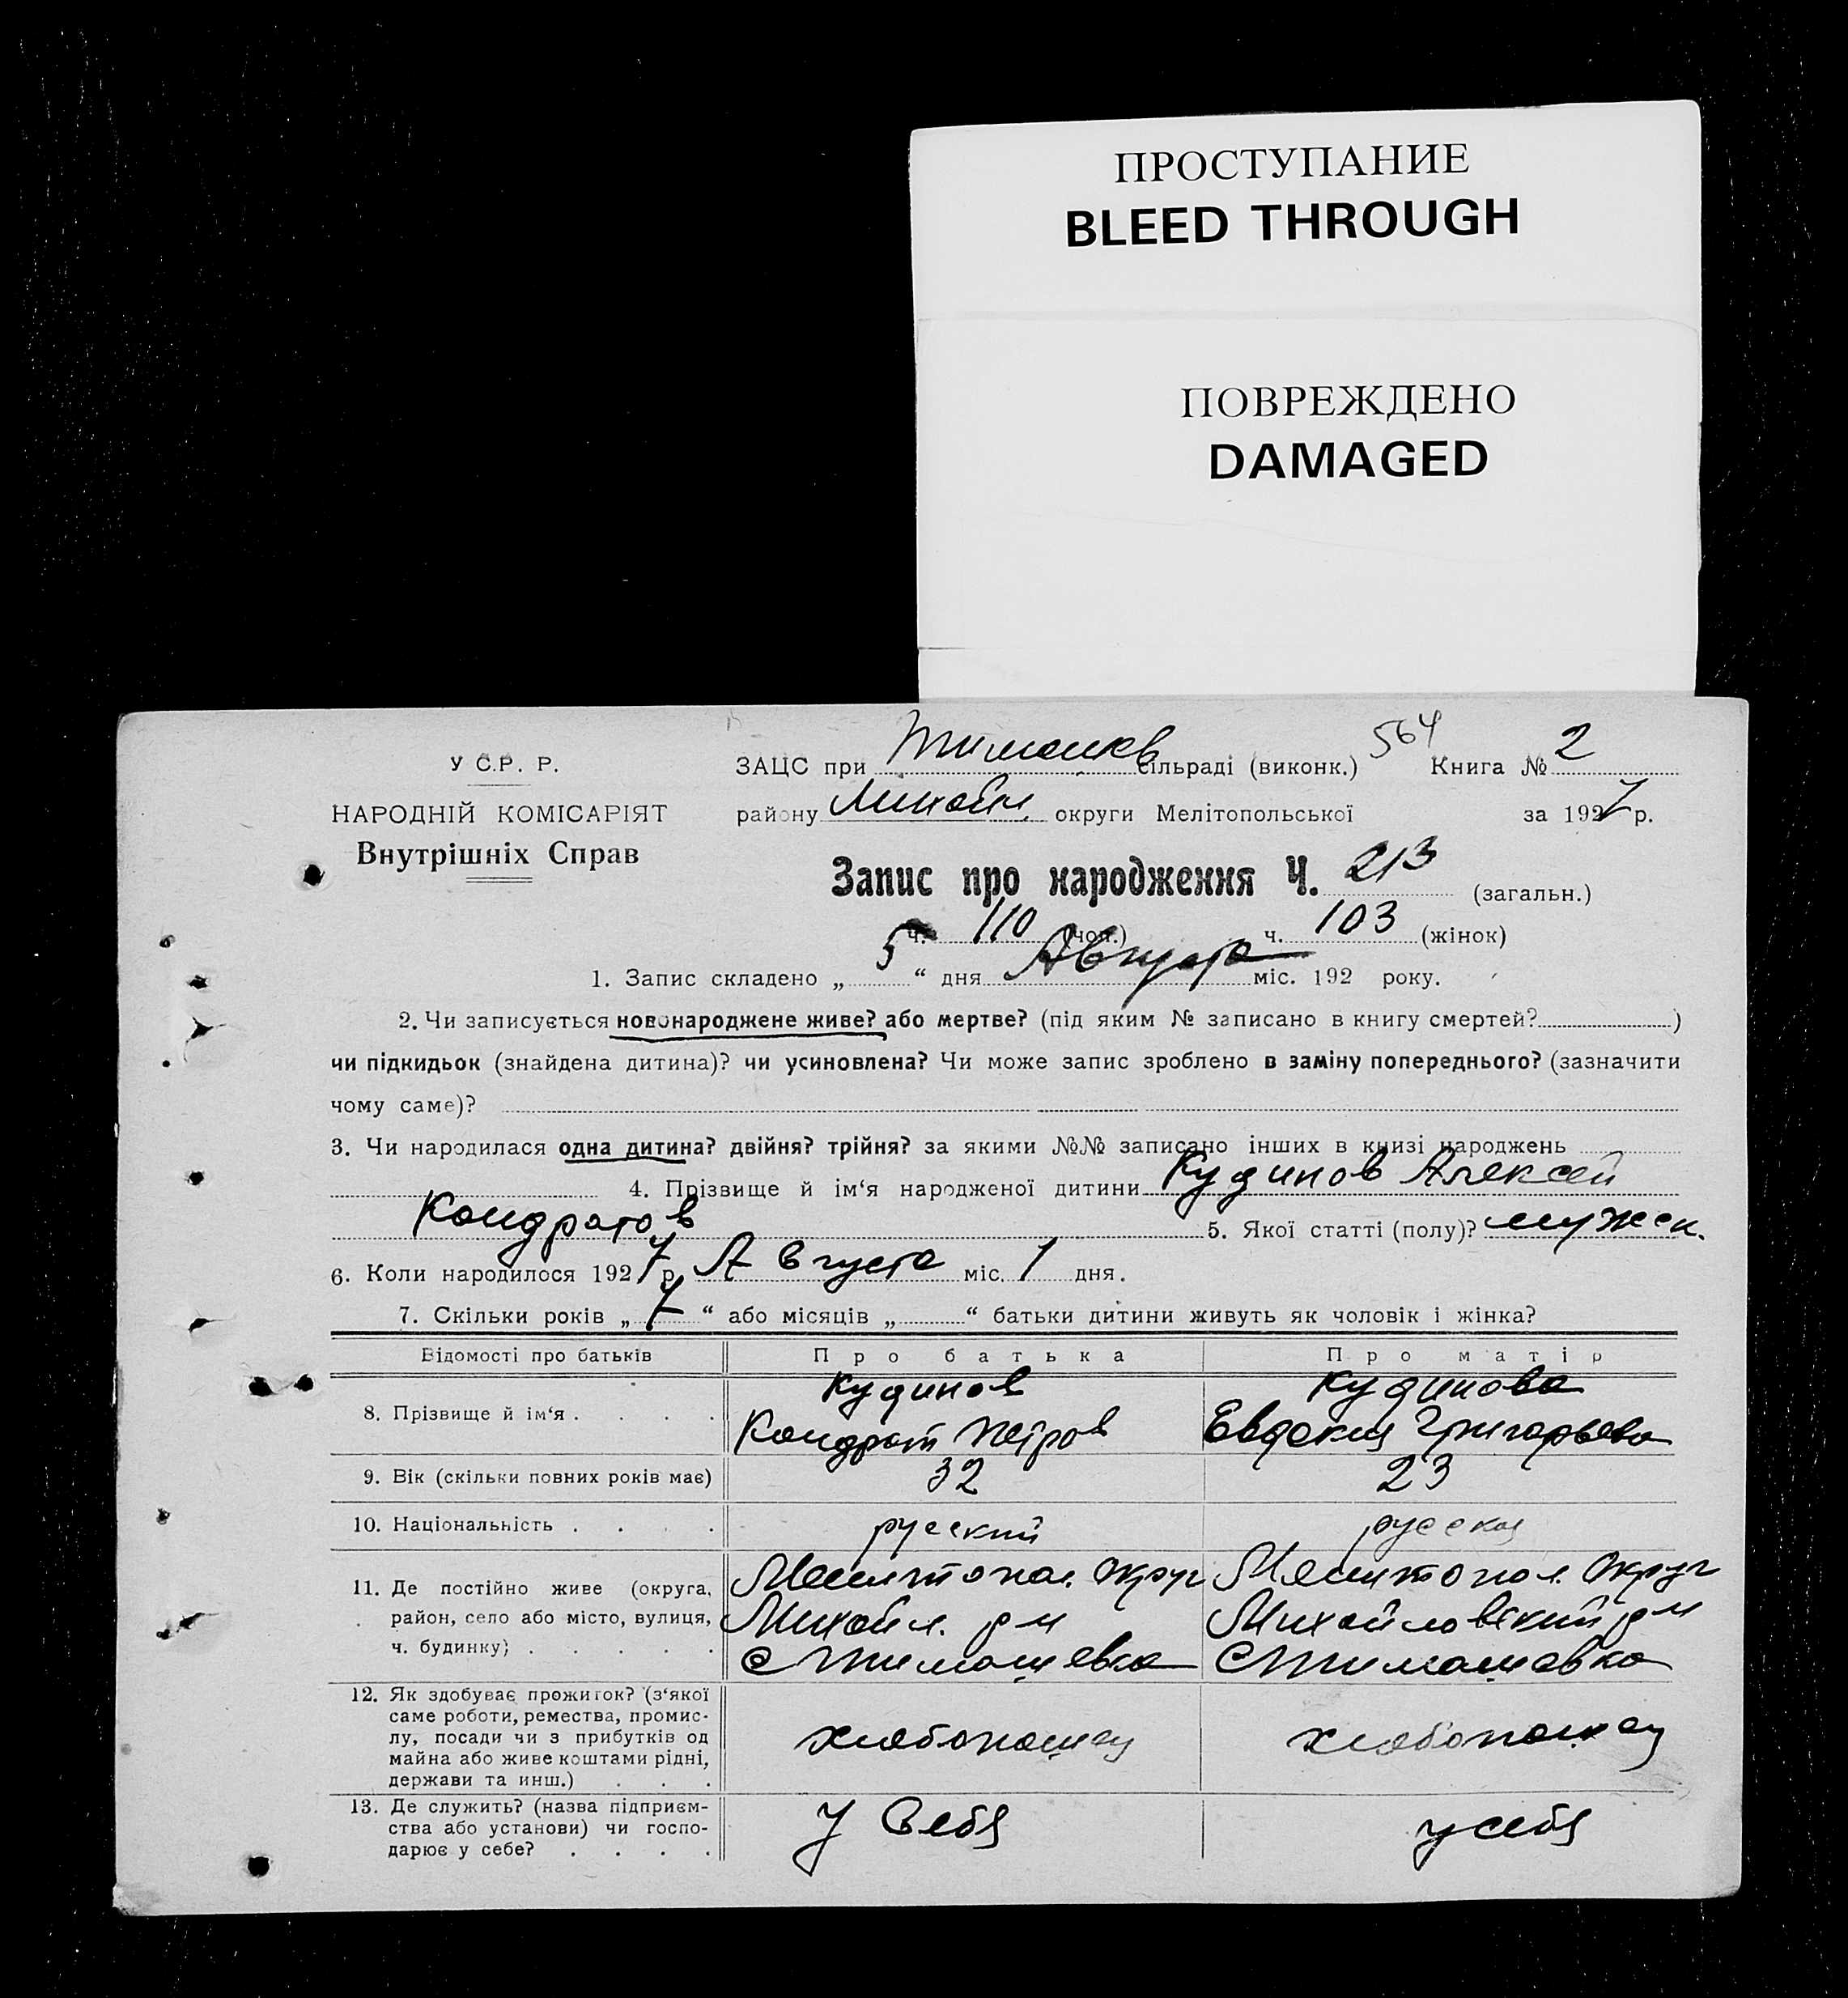 ПРОСТУПАНИЕ
BLEED THROUGH
ПОВРЕЖДЕНО
DAMAGED
У С.Р. Р.
НАРОДНІЙ КОМІСАРІЯТ
Внутрішніх Справ
ЗАЦС при Тимошев сільраді (виконк.) 564 Книга № 2
району Михайл. округи Мелітопольської за 1927 р.
Запис про народження Ч. 213 (загальн.)
ч. 110 (чол.) ч. 103 (жінок)
1. Запис складено „ 5 “ дня Августа міс. 192 року.
2. Чи записується новонароджене живе? або мертве? (під яким № записано в книгу смертей? )
чи підкидьок (знайдена дитина)? чи усиновлена? Чи може запис зроблено в заміну попереднього? (зазначити
чому саме)?
3. Чи народилася одна дитина? двійня? трійня? за якими №№ записано інших в книзі народжень
4. Прізвище й ім‘я народженої дитини Кудинов Алексей
Кондратов 5. Якої статті (полу)? мужск.
6. Коли народилося 1927 р. Августа міс. 1 дня.
7. Скільки років „ 7 “ або місяців „ “ батьки дитини живуть як чоловік і жінка?
Відомості про батьків Про батька Про матір
8. Прізвище й ім‘я . . . . Кудинов Кудинова
Кондрат Петров Евдокия Григорьева
9. Вік (скільки повних років має) 32 23
10. Національність . . . . русский русская
11. Де постійно живе (округа, район, село або місто, вулиця, ч. будинку) . . . . .
Мелитопол. Округ Мелитопол. Округ
Михайл. р-н Михайловский р-н
с Тимошевка с Тимошевка
12. Як здобуває прожиток? (з‘якої
саме роботи, ремества, промис-
лу, посади чи з прибутків од
майна або живе коштами рідні,
держави та инш.) . . .
хлебопашец хлебопашец
13. Де служить? (назва підприєм-
ства або установи) чи госпо-
дарює у себе? . . . .
У Себя у себя